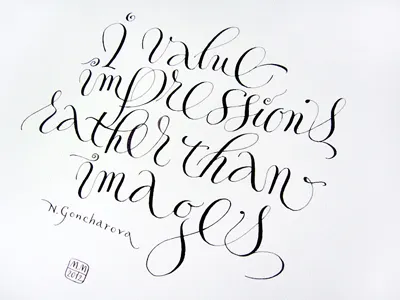 I value
impressions
rather than
images
N. Goncharova
M.M
2012